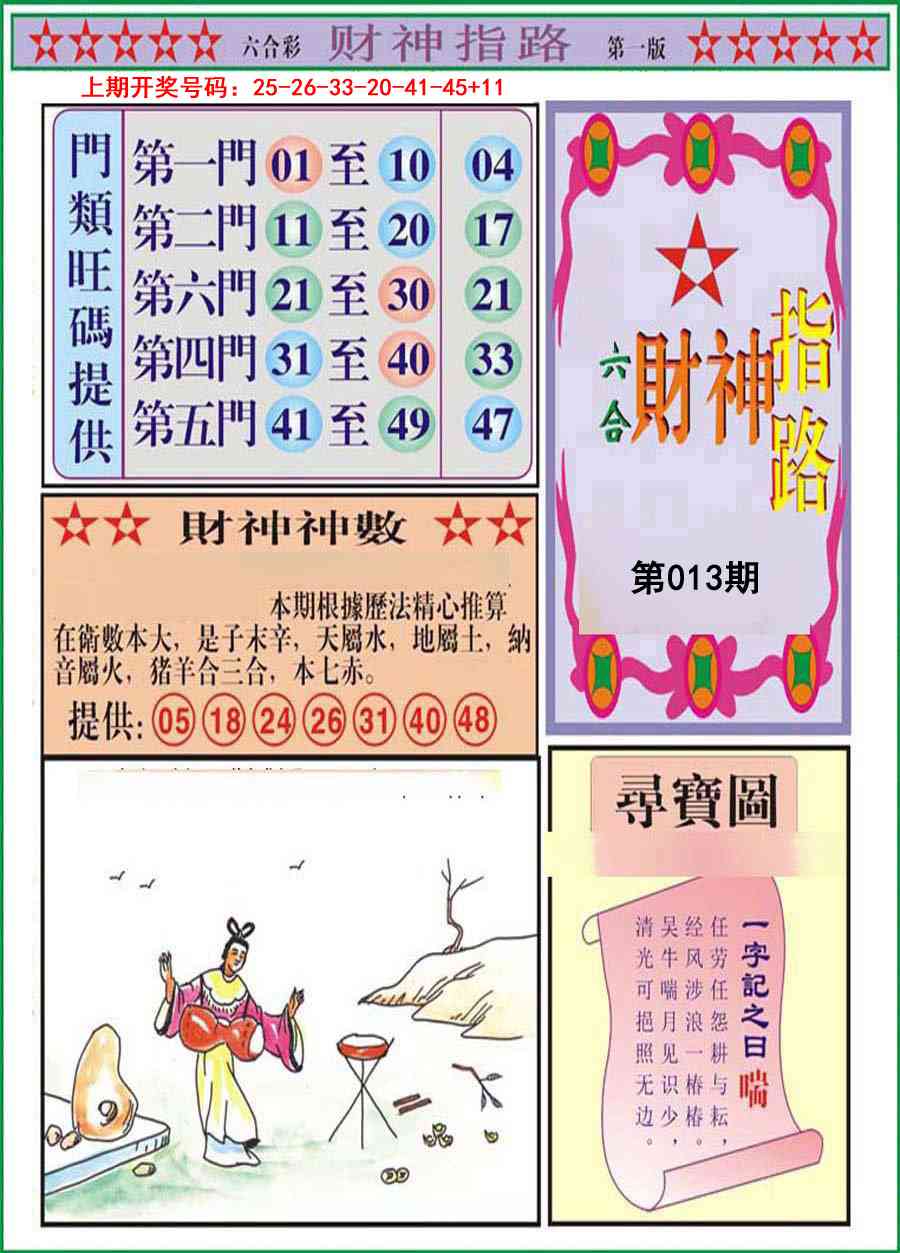 六合彩 财神指路 第一版
上期开奖号码：25-26-33-20-41-45+11
門類旺碼提供
第一門 01 至 10 04
第二門 11 至 20 17
第六門 21 至 30 21
第四門 31 至 40 33
第五門 41 至 49 47
六合 財神 指路
第013期
財神神數
本期根據歷法精心推算
在術數本大，是子末辛，天屬水，地屬土，納
音屬火，猪羊合三合，本七赤。
提供: 05 18 24 26 31 40 48
尋寶圖
一字記之日 喘
任劳任怨耕与耘，
经风涉浪一椿椿。
吴牛喘月见识少，
清光可挹照无边。